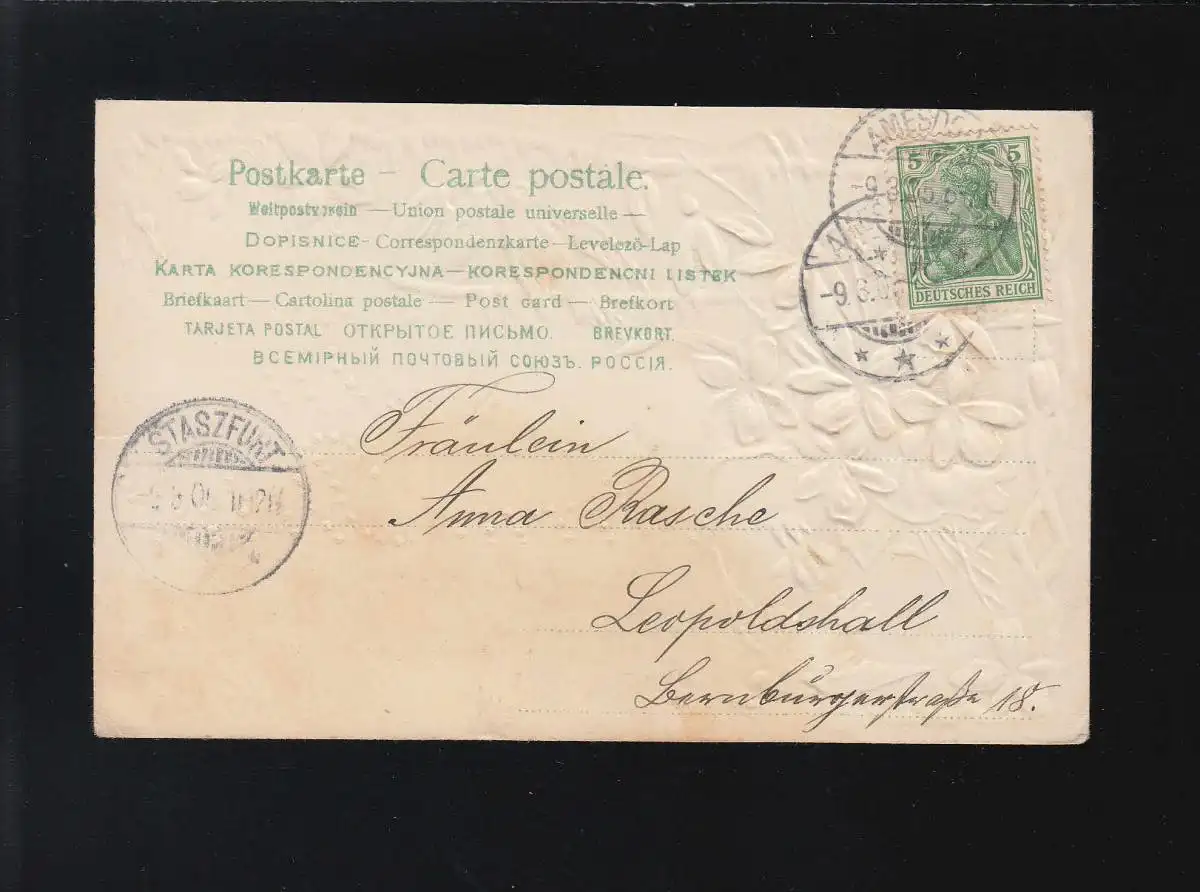 Postkarte – Carte postale.
Weltpostverein — Union postale universelle —
DOPISNICE - Correspondenzkarte — Levelező-Lap
KARTA KORESPONDENCYJNA — KORESPONDENCNI LISTEK
Briefkaart — Cartolina postale — Post card — Brefkort
TARJETA POSTAL ОТКРЫТОЕ ПИСЬМО. BREVKORT.
ВСЕМІРНЫЙ ПОЧТОВЫЙ СОЮЗЪ. РОССІЯ.
AMESDO
5 5
DEUTSCHES REICH
STASZFURT
Fräulein
Anna Rasche
Leopoldshall
Bernburgerstraße 18.